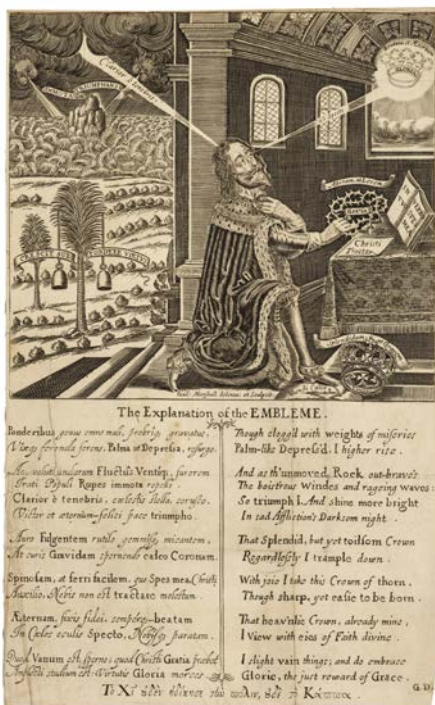 IMMOTA TRIUMPHANS
Clarior é tenebris
Beatam & Æternam
GLORIA
CRESCIT SUB PONDERE VIRTVS
Asperam at Levem
GRATIA
Christi Tracto
Splendidam at Gravem
Guil: Marshall delineavit et sculpsit
The Explanation of the EMBLEME.
Ponderibus genus omne mali, probriq gravatus,
Vixq ferenda ferens, Palma ut Depressa, resurgo.
Ac, velut undarum Fluctûs Ventiq, furorem
Irati Populi Rupes immota repello.
Clarior é tenebris, cœlestis stella, corusco.
Victor et æternùm-felici pace triumpho.
Auro Fulgentem rutilo gemmisq micantem,
At curis Gravidam spernendo calco Coronam.
Spinosam, at ferri facilem, quo Spes mea, Christi
Auxilio, Nobis non est tractare molestum.
Æternam, fixis fidei, semperq-beatam
In Cælos oculis Specto, Nobisq paratam.
Quod Vanum est, sperno; quod Christi Gratia præbet
Amplecti studium est: Virtutis Gloria merces.
Though clogg'd with weights of miseries
Palm-like Depress'd, I higher rise.
And as th'unmoved Rock out-brave's
The boistrous Windes and rageing waves:
So triumph I. And shine more bright
In sad Affliction's Darksom night.
That Splendid, but yet toilsom Crown
Regardlessly I trample down.
With joie I take this Crown of thorn,
Though sharp, yet easie to be born.
That heav'nlie Crown, already mine,
I View with eies of Faith divine.
I slight vain things; and do embrace
Glorie, the just reward of Grace.
Τὸ Χῖ οὐδὲν ἠδίκησε τὴν πόλιν, οὐδὲ τὸ Κάππα.
G.D.